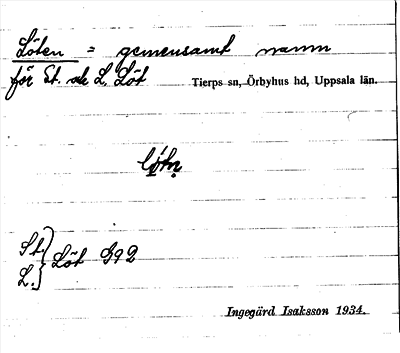 Löten = gemensamt namn
för St. ok L. Löt Tierps sn, Örbyhus hd, Uppsala län.
St.
L. } Löt G92
Ingegärd Isaksson 1934.